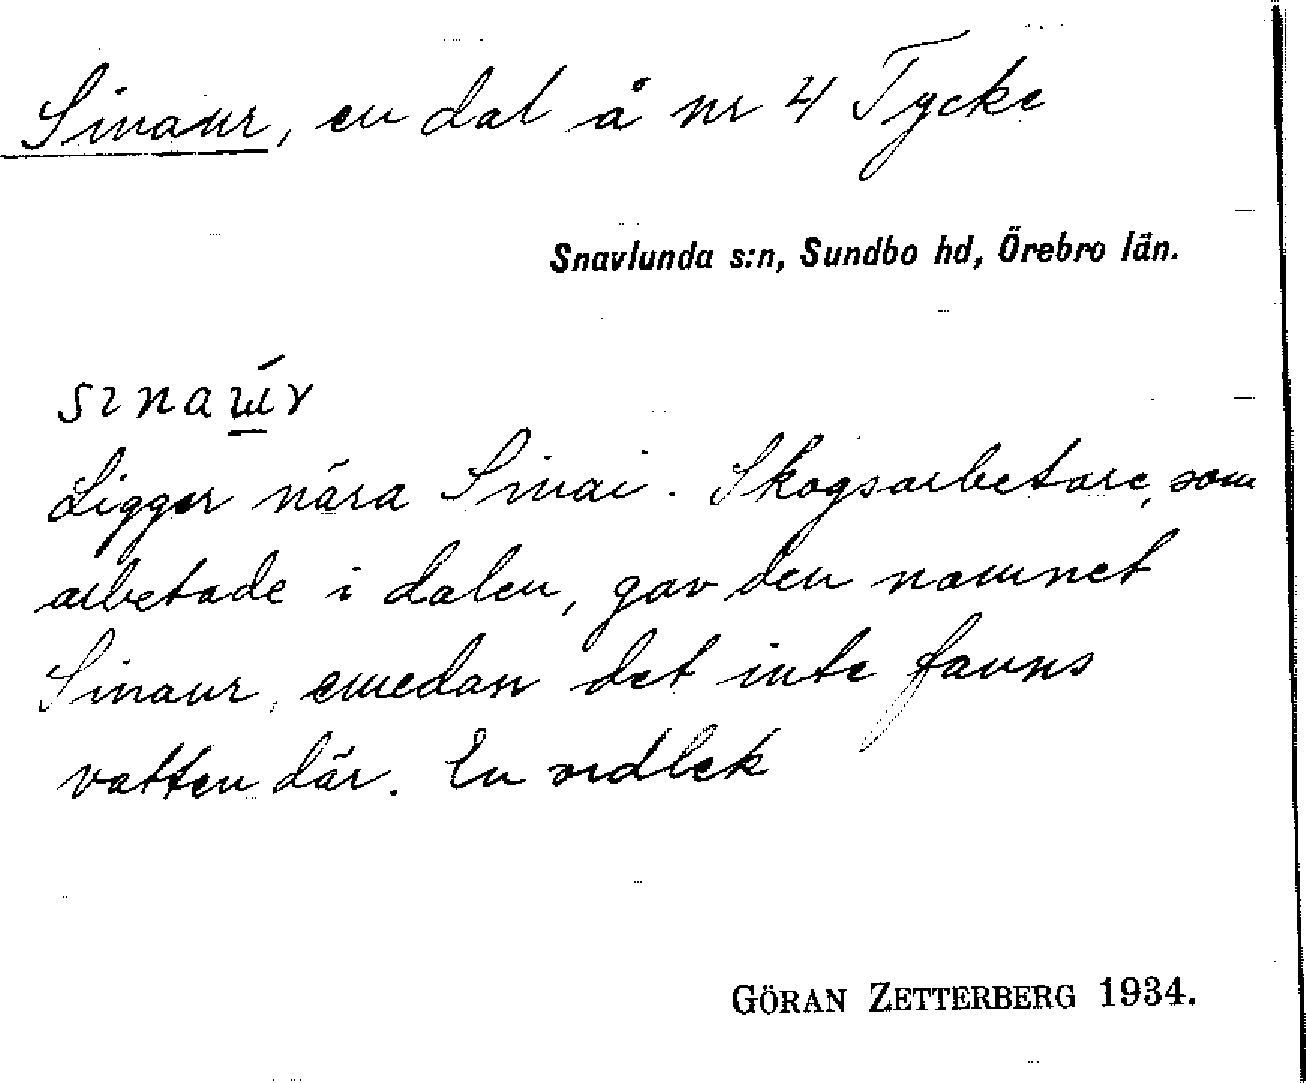 Sinaur, en dal å nr 4 Tycke
Snavlunda s:n, Sundbo hd, Örebro län.
Ligger nära Sinai. Skogsarbetare, som
arbetade i dalen, gav den namnet
Sinaur, emedan det inte fanns
vatten där. En ordlek
GÖRAN ZETTERBERG 1934.